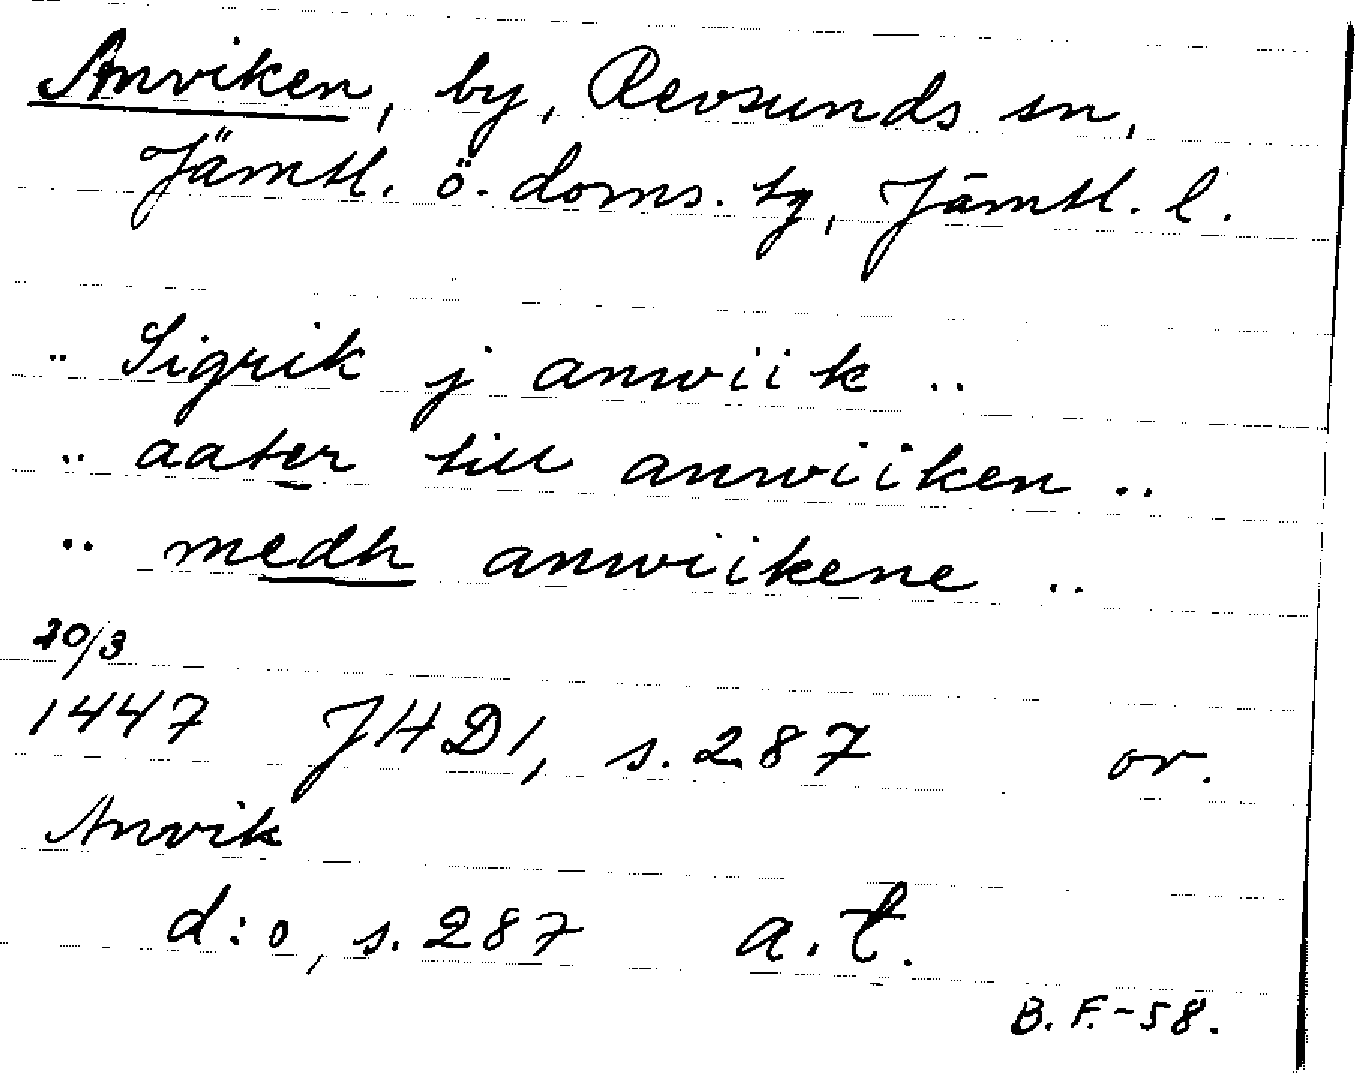 Anviken, by, Revsunds sn,
Jämtl. ö. doms. tg, Jämtl. l.
.. Sigrik j anwiik ..
.. aater till anwiiken ..
.. medh anwiikene ..
20/3
1447 JHD1, s. 287 or.
Anvik
d:o, s. 287 a. t.
B. F. - 58.